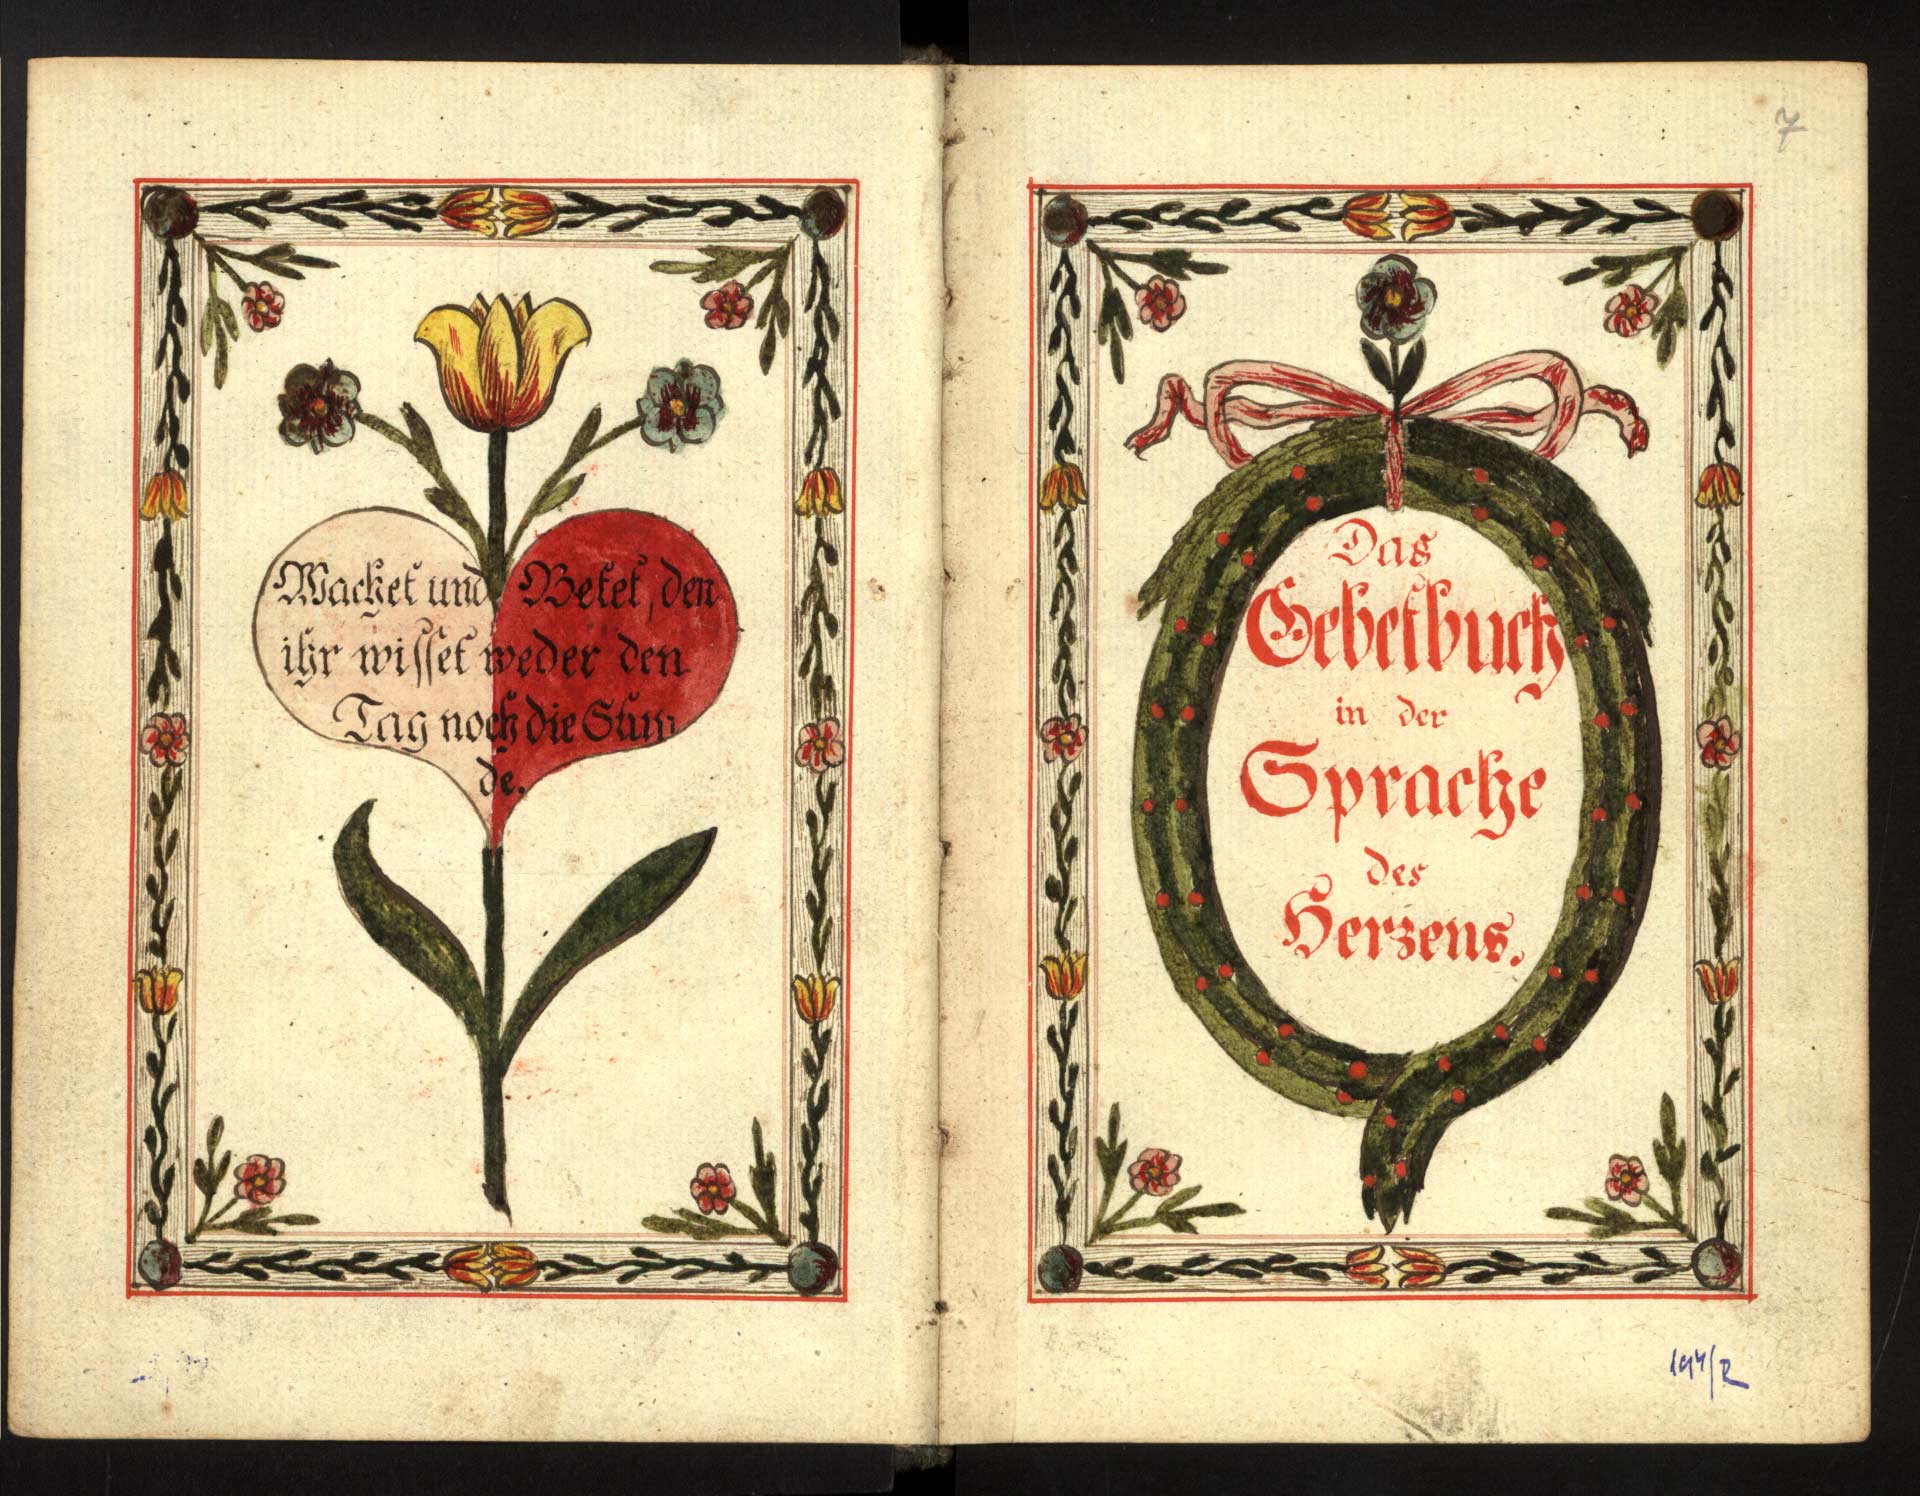 Wachet und Betet, den
ihr wisset weder den
Tag noch die Stun
de.
7
Das
Gebetbuch
in der
Sprache
des
Herzens.